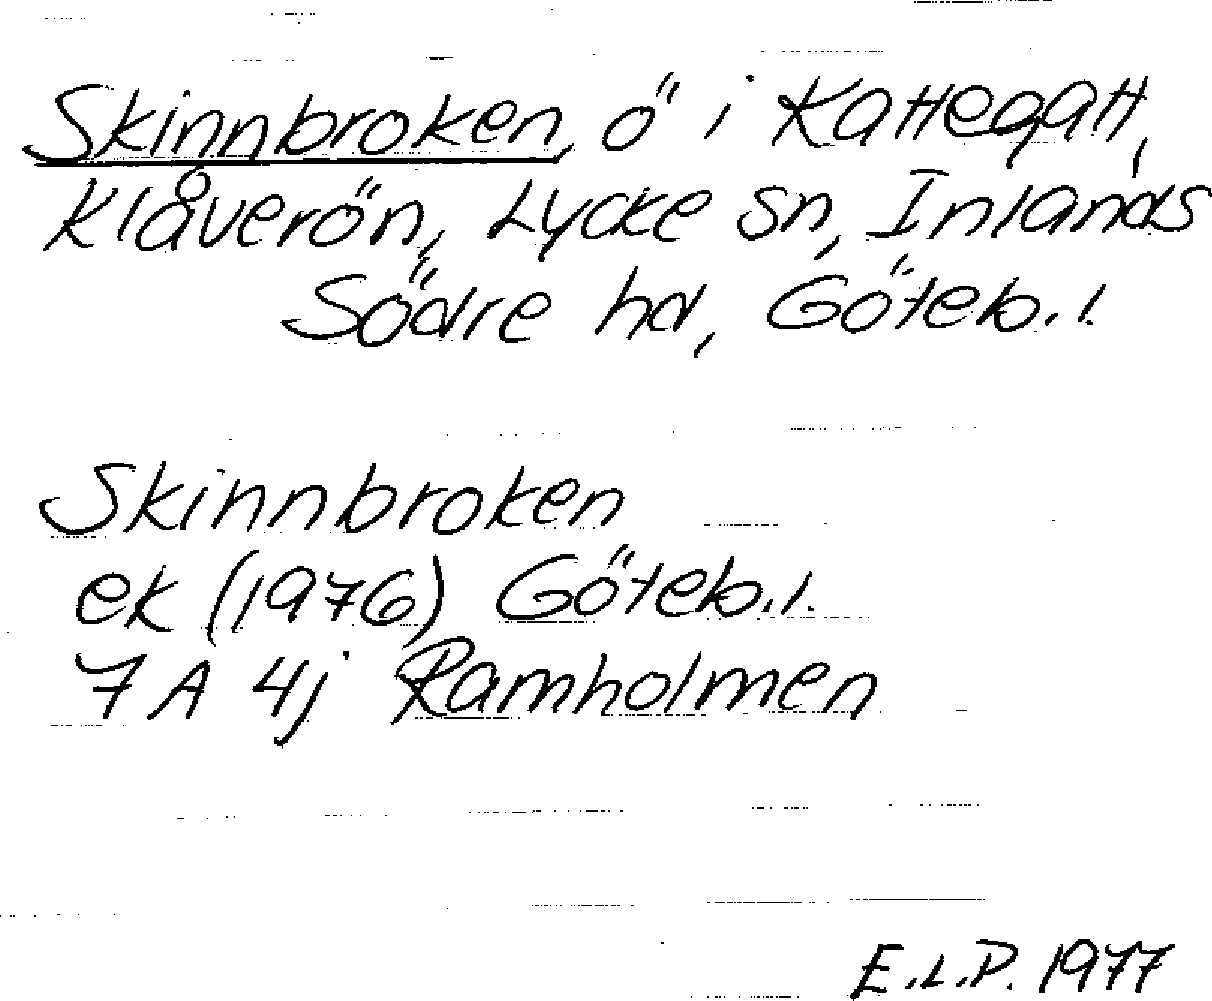 Skinnbroken, ö i Kattegatt,
Klåverön, Lycke sn, Inlands
Södre hd, Göteb.l.
Skinnbroken
ek (1976) Göteb.l.
7A 4j Ramholmen
E.L.P. 1977